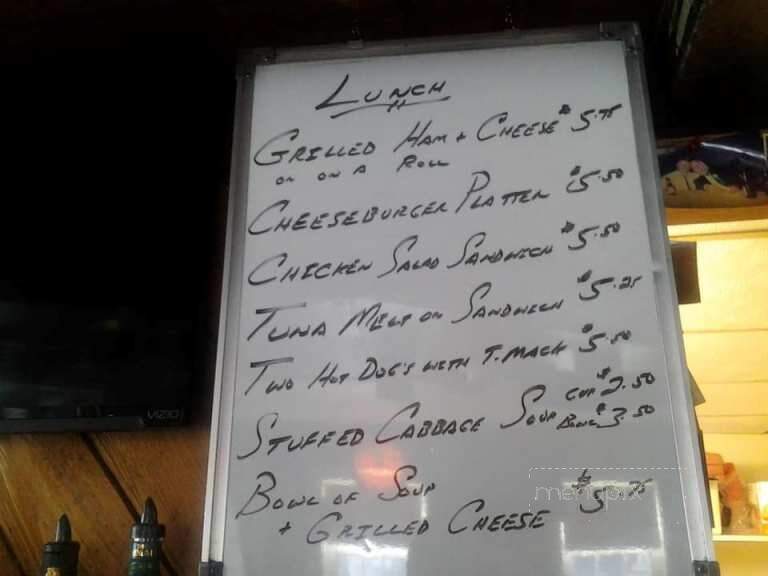 LUNCH
GRILLED HAM + CHEESE $5.75
OR ON A ROLL
CHEESEBURGER PLATTER $5.50
CHICKEN SALAD SANDWICH $5.50
TUNA MELT OR SANDWICH $5.25
TWO HOT DOG'S WITH T. MACK $5.50
STUFFED CABBAGE SOUP CUP $2.50
BOWL $3.50
BOWL OF SOUP
+ GRILLED CHEESE $5.75
VIZIO
menupix